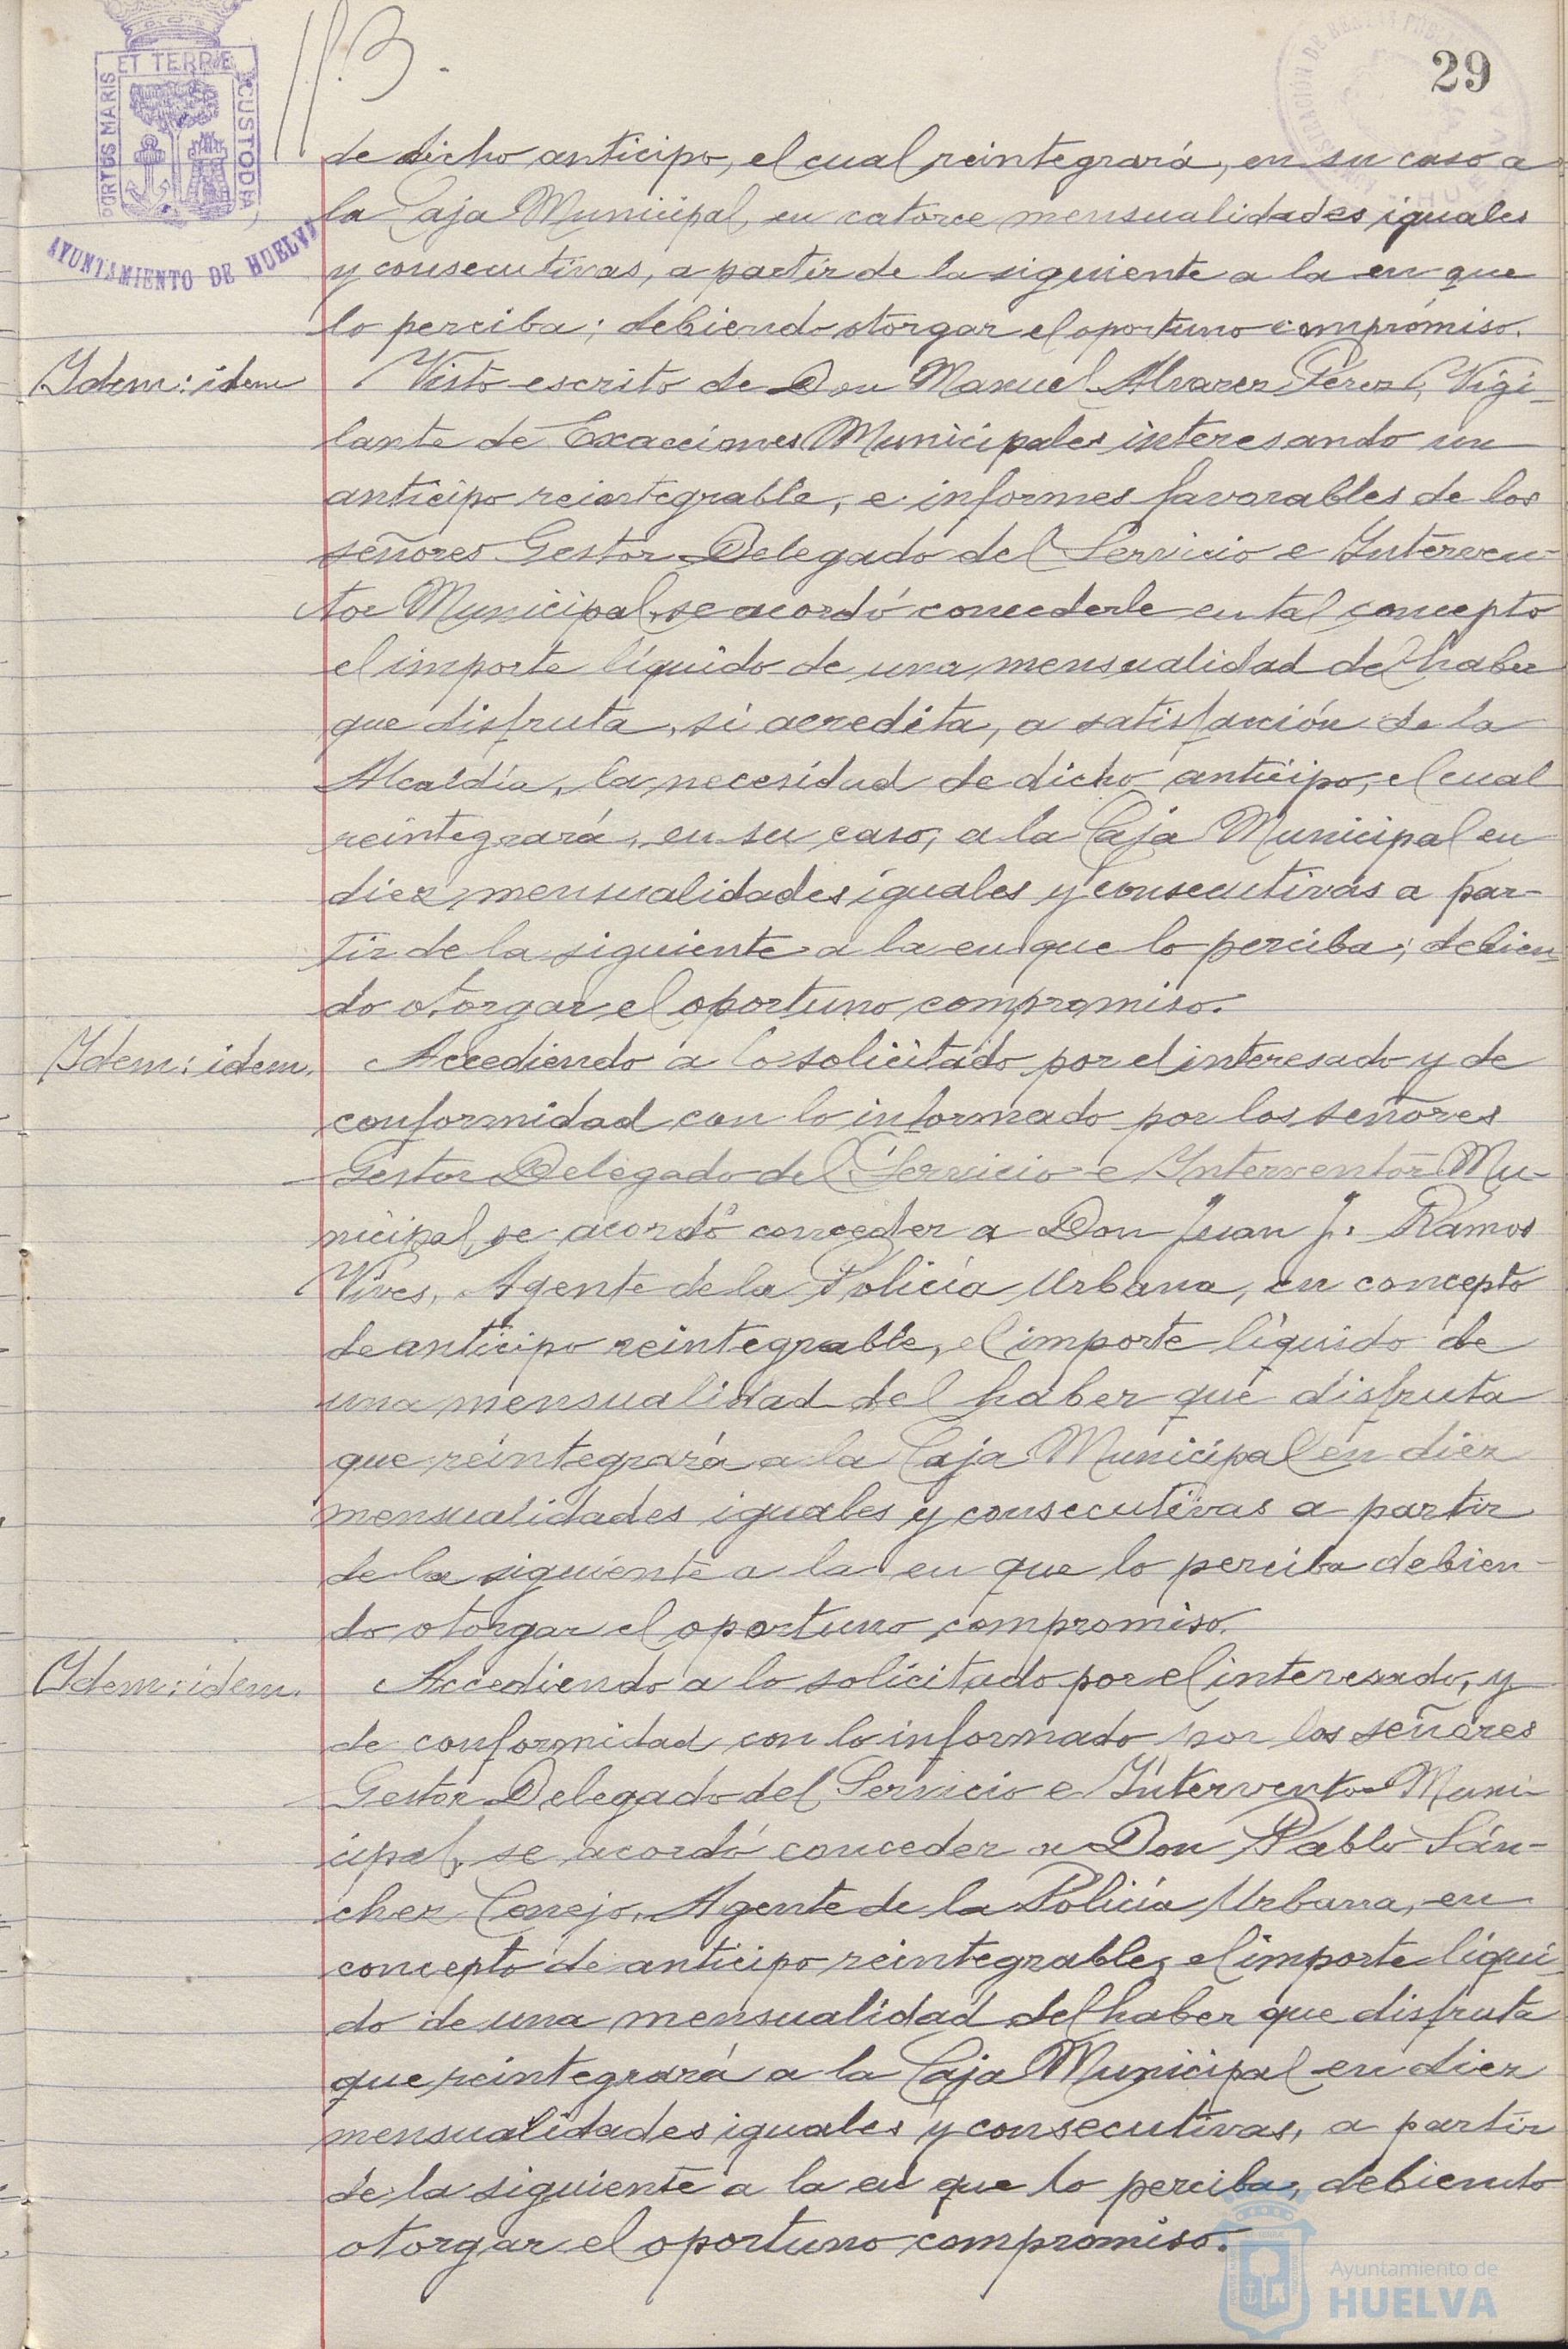 29
ET TERRÆ
PORTUS MARIS
CUSTODIA
AYUNTAMIENTO DE HUELVA
de dicho anticipo, el cual reintegrará, en su caso a
la Caja Municipal, en catorce mensualidades iguales
y consecutivas, a partir de la siguiente a la en que
lo perciba; debiendo otorgar el oportuno compromiso.
Idem: idem
Visto escrito de Don Manuel Alvarez Pérez, Vigi-
lante de Exacciones Municipales interesando un
anticipo reintegrable, e informes favorables de los
señores Gestor Delegado del Servicio e Interven-
tor Municipal, se acordó concederle en tal concepto
el importe líquido de una mensualidad del haber
que disfruta, si acredita, a satisfacción de la
Alcaldía, la necesidad de dicho anticipo, el cual
reintegrará, en su caso, a la Caja Municipal en
diez mensualidades iguales y consecutivas a par-
tir de la siguiente a la en que lo perciba; debien-
do otorgar el oportuno compromiso.
Idem: idem.
Accediendo a lo solicitado por el interesado y de
conformidad con lo informado por los señores
Gestor Delegado del Servicio e Interventor Mu-
nicipal, se acordó conceder a Don Juan J. Ramos
Vives, Agente de la Policía Urbana, en concepto
de anticipo reintegrable, el importe líquido de
una mensualidad del haber que disfruta
que reintegrará a la Caja Municipal en diez
mensualidades iguales y consecutivas a partir
de la siguiente a la en que lo perciba debien-
do otorgar el oportuno compromiso.
Idem: idem.
Accediendo a lo solicitado por el interesado, y
de conformidad con lo informado por los señores
Gestor Delegado del Servicio e Interventor Muni-
cipal, se acordó conceder a Don Pablo Sán-
chez Conejo, Agente de la Policía Urbana, en
concepto de anticipo reintegrable, el importe líqui-
do de una mensualidad del haber que disfruta
que reintegrará a la Caja Municipal en diez
mensualidades iguales y consecutivas, a partir
de la siguiente a la en que lo perciba, debiendo
otorgar el oportuno compromiso.
Ayuntamiento de
HUELVA